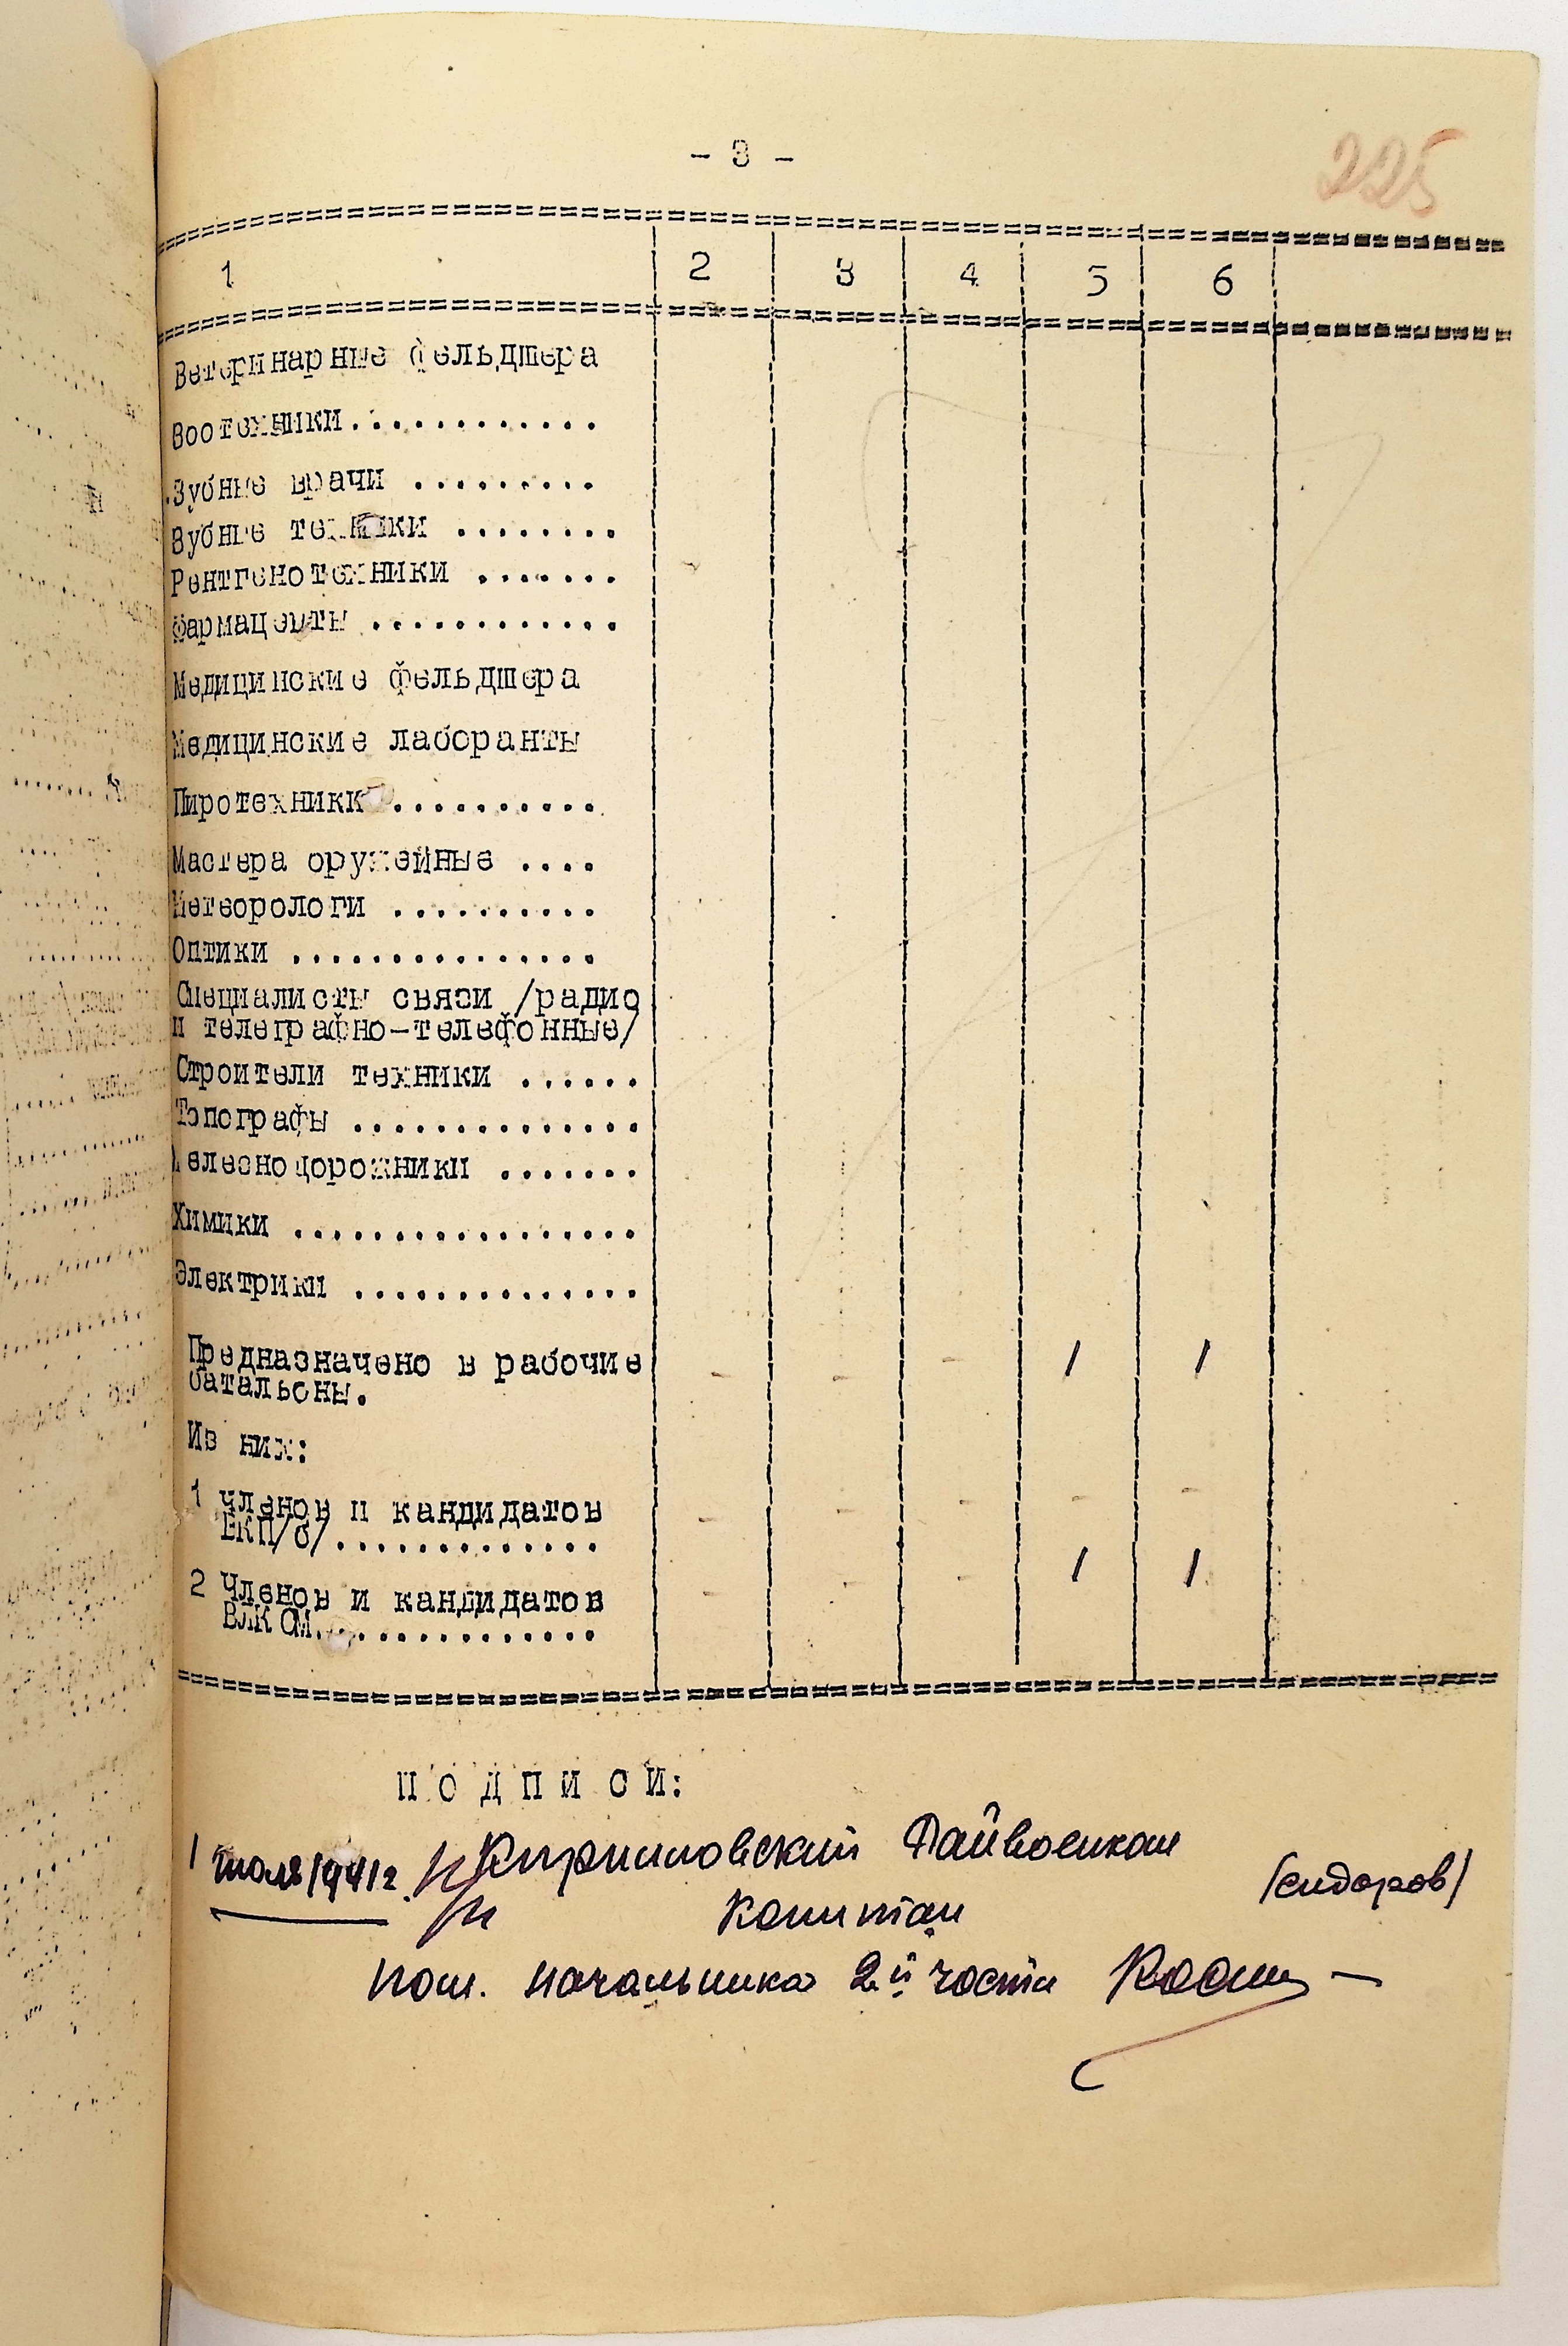 - 3 -
225
1 2 3 4 5 6
Ветеринарные фельдшера
Зоотехники............
Зубные врачи .........
Зубные техники ........
Рентгенотехники .......
Фармацевты ............
Медицинские фельдшера
Медицинские лаборанты
Пиротехники ..........
Мастера оружейные ....
Метеорологи ..........
Оптики ...............
Специалисты связи /радио
и телеграфно-телефонные/
Строители техники ......
Топографы ..............
Железнодорожники .......
Химики .................
Электрики ..............
Предназначено в рабочие - - - 1 1
батальоны.
Из них:
1 Членов и кандидатов - - - - -
ВКП/б/.............
2 Членов и кандидатов - - - 1 1
ВЛКСМ..............
П О Д П И С И:
1 июля 1941г. Кирилловский Райвоенком
Капитан /Сидоров/
Пом. начальника 2й части